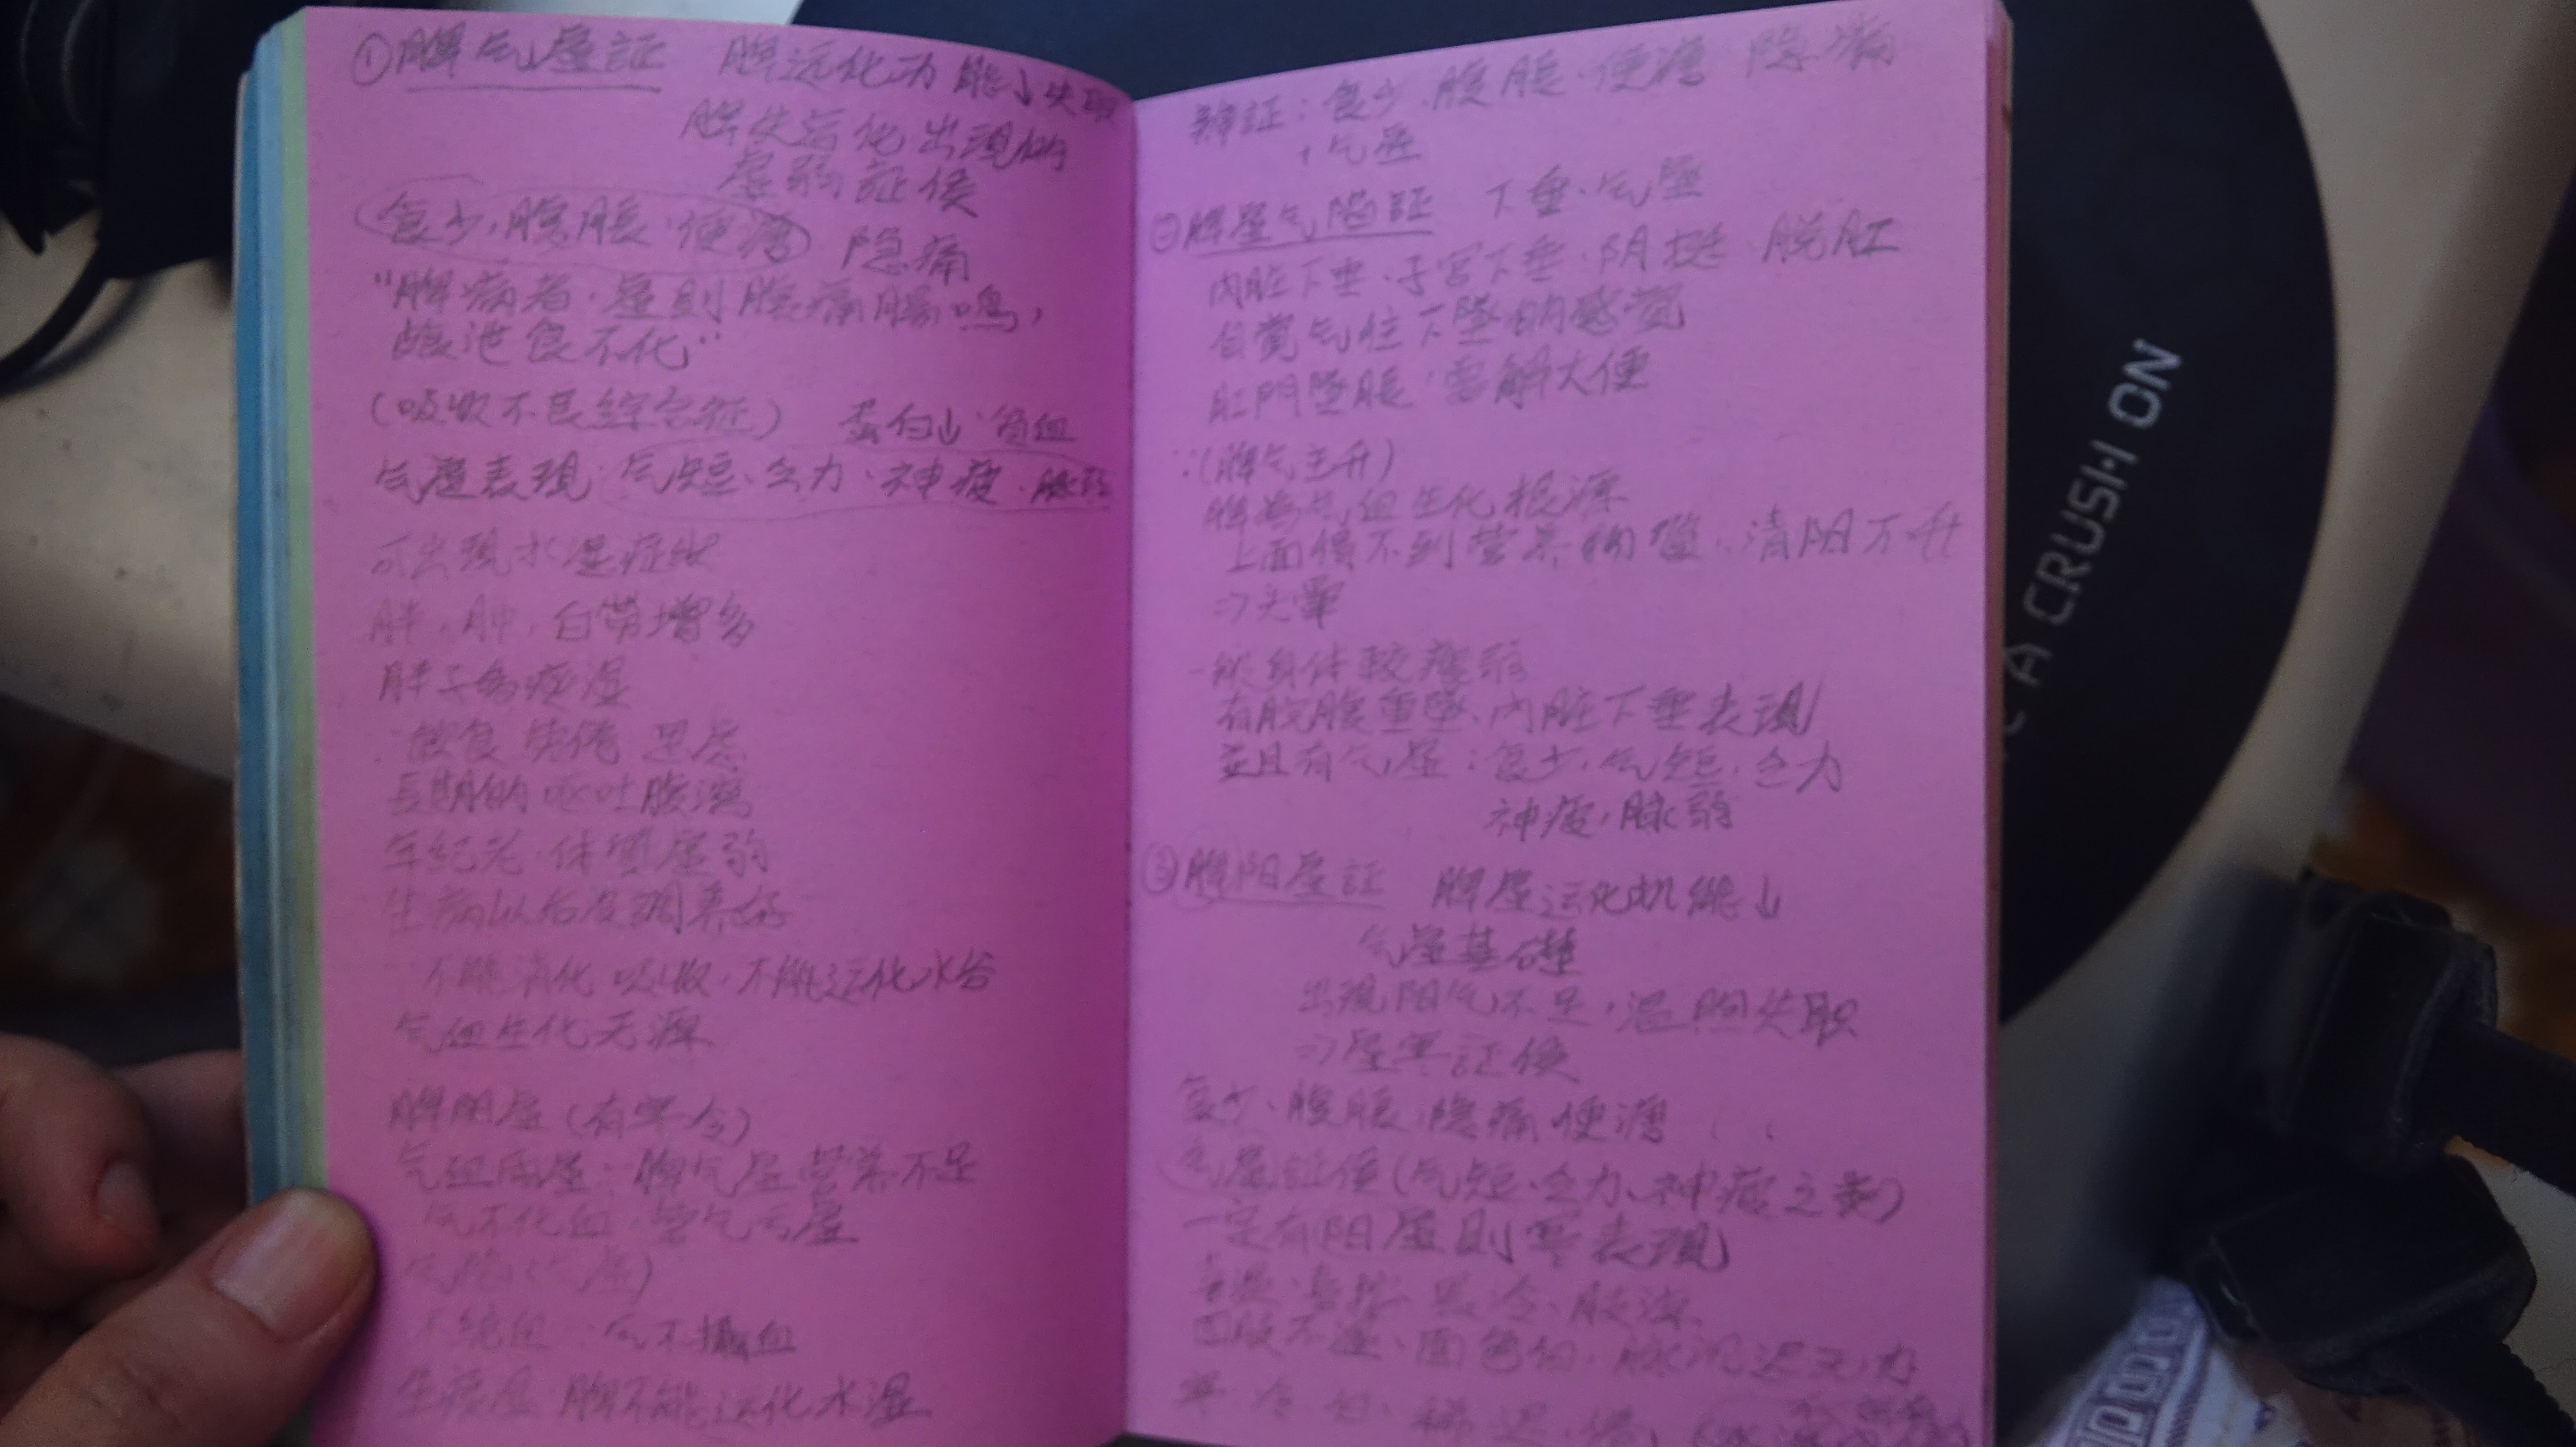 ①脾气虚証 脾运化功能↓失职
脾失运化出现的
虚弱証候
食少,腹脹·便溏 隐痛
"脾病者·虚則腹痛腸鸣,
飧泄食不化"
(吸收不良綜合征) 蛋白↓·貧血
气虚表現·气短、乏力、神疲·脉弱
可出現水湿症状
胖,肿,白带增多
胖子多痰湿
∴飲食 劳倦 思虑
長期的呕吐腹瀉
年纪老·体質虚弱
生病以后没調养好
不能消化吸收·不能运化水谷
气血生化无源
脾阳虚(有寒冷)
气血两虚∵脾气虚营养不足
气不化血·营气亏虚
气陷
不統血∵气不攝血
生痰湿 脾不能运化水湿
辨証:食少·腹脹·便溏 隐痛
+气虚
②脾虚气陷証 下垂·气坠
内脏下垂·子宫下垂·阴挺·脱肛
自覺气往下墜的感觉
肛門墜脹·需解大便
∵(脾气主升)
脾為气血生化根源
上面得不到营养物質·清阳不升
⇒头暈
一般身体較瘦弱
有脘腹重墜、内脏下垂表現
並且有气虚:食少·气短·乏力
神疲·脉弱
③脾阳虚証 脾虚运化机能↓
气虚基礎
出現阳气不足,温煦失职
⇒虚寒証候
食少、腹脹、隐痛便溏
气虚証候(气短·乏力、神疲之类)
一定有阳虚則寒表現
喜温·喜按·畏冷、肢凉
四肢不温、面色白,脉沉迟无力
寒·冷·白·稀·迟
A CRUSH ON